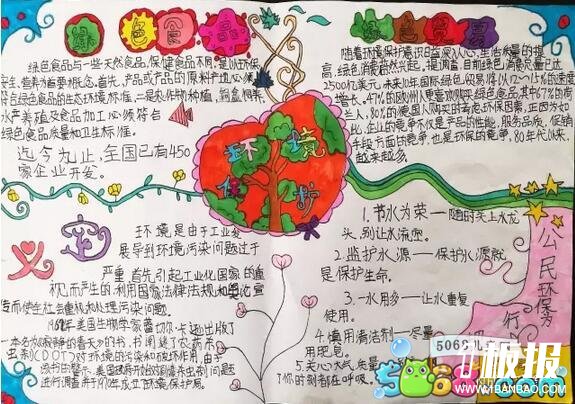 绿色食品
绿色食品与一些天然食品,保健食品不同,是以环保,
安全,营养为首要概念。首先,产品或产品的原料产地必须
符合绿色食品的生态环境标准,二是农作物种植,
水产养殖及食品加工必须符合
绿色食品质量和卫生标准。
迄今为止,全国已有450
家企业开发。
绿色贸易
随着环境保护意识日益深入人心,生活质量的提
高,绿色消费悄然兴起,提调查,目前绿色消费总量已达
2500亿美元,未来10年,国际绿色贸易将以12~15%的速度
增长。47%的欧洲人更喜欢购绿色食品,其中67%的荷
兰人,80%的德国人购买时考虑环保因素,正因为如
此,企业的竞争不仅是产品的性能,服务品质,促销
手段方面的竞争,也是环保的竞争。80年代以来,
越来越多。
环境
保护
定义
环境是由于工业发
展导到环境污染问题过于
严重,首先引起工业化国家的重
视而产生的,利用国家法律法规和舆论宣
传而使全社会重视和处理污染问题。
1962年美国生物学家蕾切尔·卡逊出版了
一本名为寂静的春天》的书,书阐述了农药杀
虫剂(CDDT)对环境的污染和破坏作用,由于
该书的警示,美国政府开始对剧毒杀虫剂问题
进行调查,并于1970年成立了环境保护局。
公民环保
行
1.节水为荣——随时关上水龙
头,别让水流堡。
2.监护水源——保护水源就
是保护生命。
3.一水多用——让水重复
使用。
4.慎用清洁剂——尽量
用肥皂。
5.关心大气质量
了你时刻都在呼吸。
5068儿
板报
WWW.1BANBAO.COM